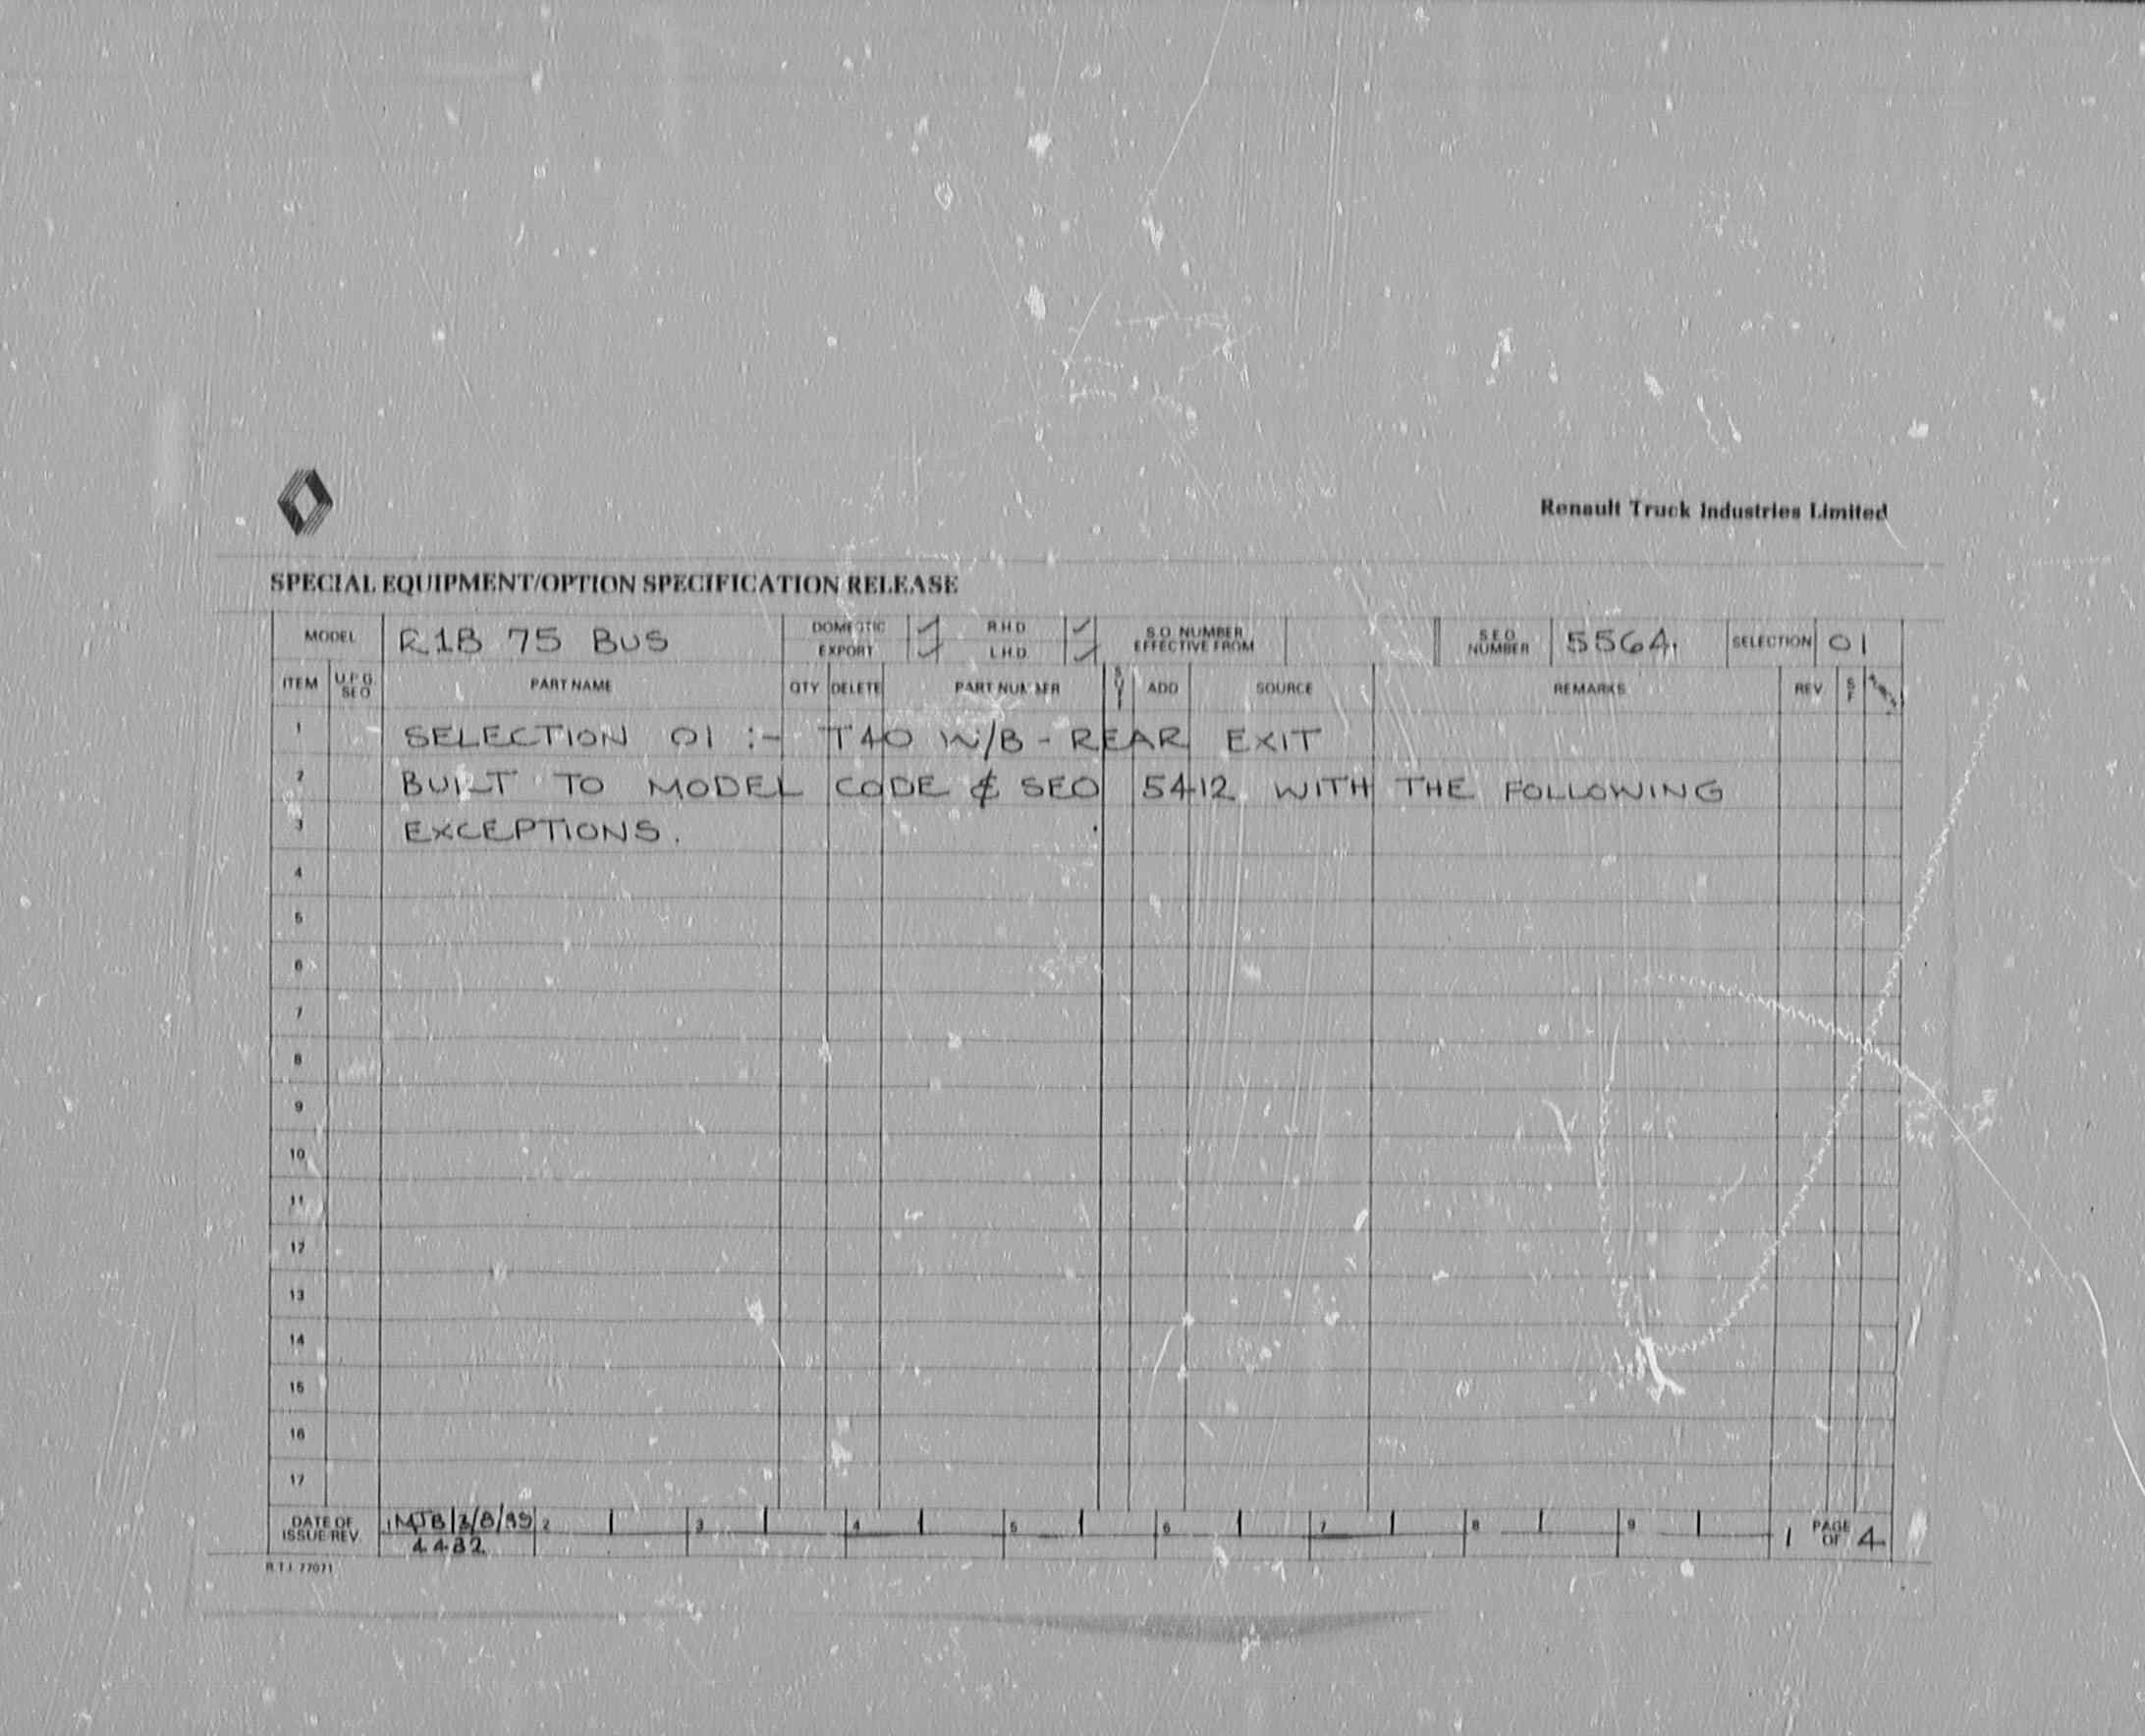 Renault Truck Industries Limited
SPECIAL EQUIPMENT/OPTION SPECIFICATION RELEASE
MODEL R1B 75 BUS DOMESTIC ✓ R.H.D. ✓ S.O. NUMBER EFFECTIVE FROM S.E.O. NUMBER 5564. SELECTION 01
EXPORT ✓ L.H.D. ✓
ITEM U.P.G. SEO PART NAME QTY DELETE PART NUMBER ADD SOURCE REMARKS REV S F
1 SELECTION 01 :- T40 W/B - REAR EXIT
2 BUILT TO MODEL CODE & SEO 5412 WITH THE FOLLOWING
3 EXCEPTIONS.
4
5
6
7
8
9
10
11
12
13
14
15
16
17
DATE OF ISSUE/REV. 1 MJB 2 3 4 5 6 7 8 9 1 PAGE OF 4
R.T.I. 77071